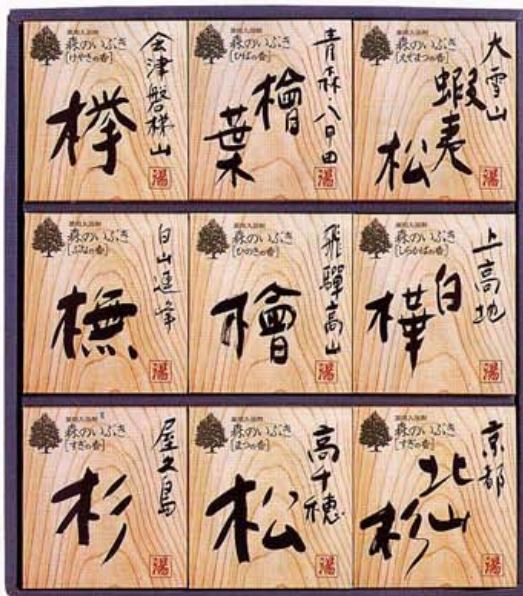 薬用入浴剤
森のいぶき
[けやきの香]
会津磐梯山
欅
湯
薬用入浴剤
森のいぶき
[ひばの香]
青森・八甲田
檜葉
湯
薬用入浴剤
森のいぶき
[えぞまつの香]
大雪山
蝦夷松
湯
薬用入浴剤
森のいぶき
[ぶなの香]
白山連峰
橅
湯
薬用入浴剤
森のいぶき
[ひのきの香]
飛驒高山
檜
湯
薬用入浴剤
森のいぶき
[しらかばの香]
上高地
白樺
湯
薬用入浴剤
森のいぶき
[すぎの香]
屋久島
杉
湯
薬用入浴剤
森のいぶき
[まつの香]
高千穂
松
湯
薬用入浴剤
森のいぶき
[すぎの香]
京都
北山杉
湯